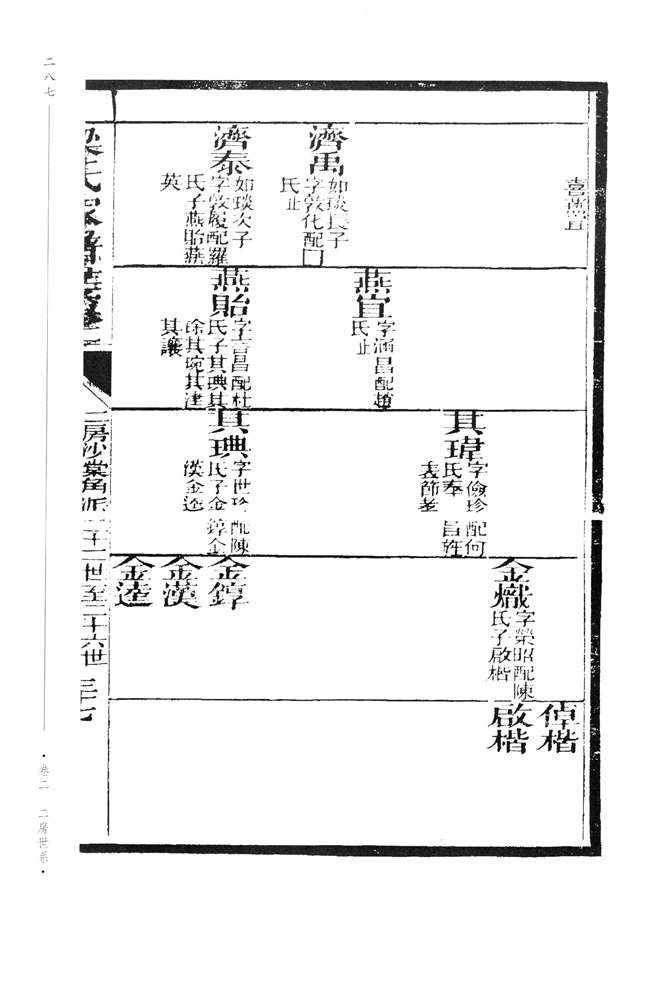 喜燕宜
濟禹
如琰長子
字敦化配囗
氏止
濟泰
如琰次子
字敦履配羅
氏子燕貽燕
英
燕宜
字涵昌配趙
氏止
燕貽
字言昌配杜
氏子其琠其
琮其琬其達
其讓
其瑋
字儉珍配何
氏奉旨旌
表節孝
其琠
字世珍配陳
氏子金錞金
漢金逵
金熾
字榮昭配陳
氏子啟楷
金錞
金漢
金逵
倬楷
啟楷
梁氏家譜
二房沙棠角派
二十二世至二十六世
三十七
二八七
·卷二 二房世系·